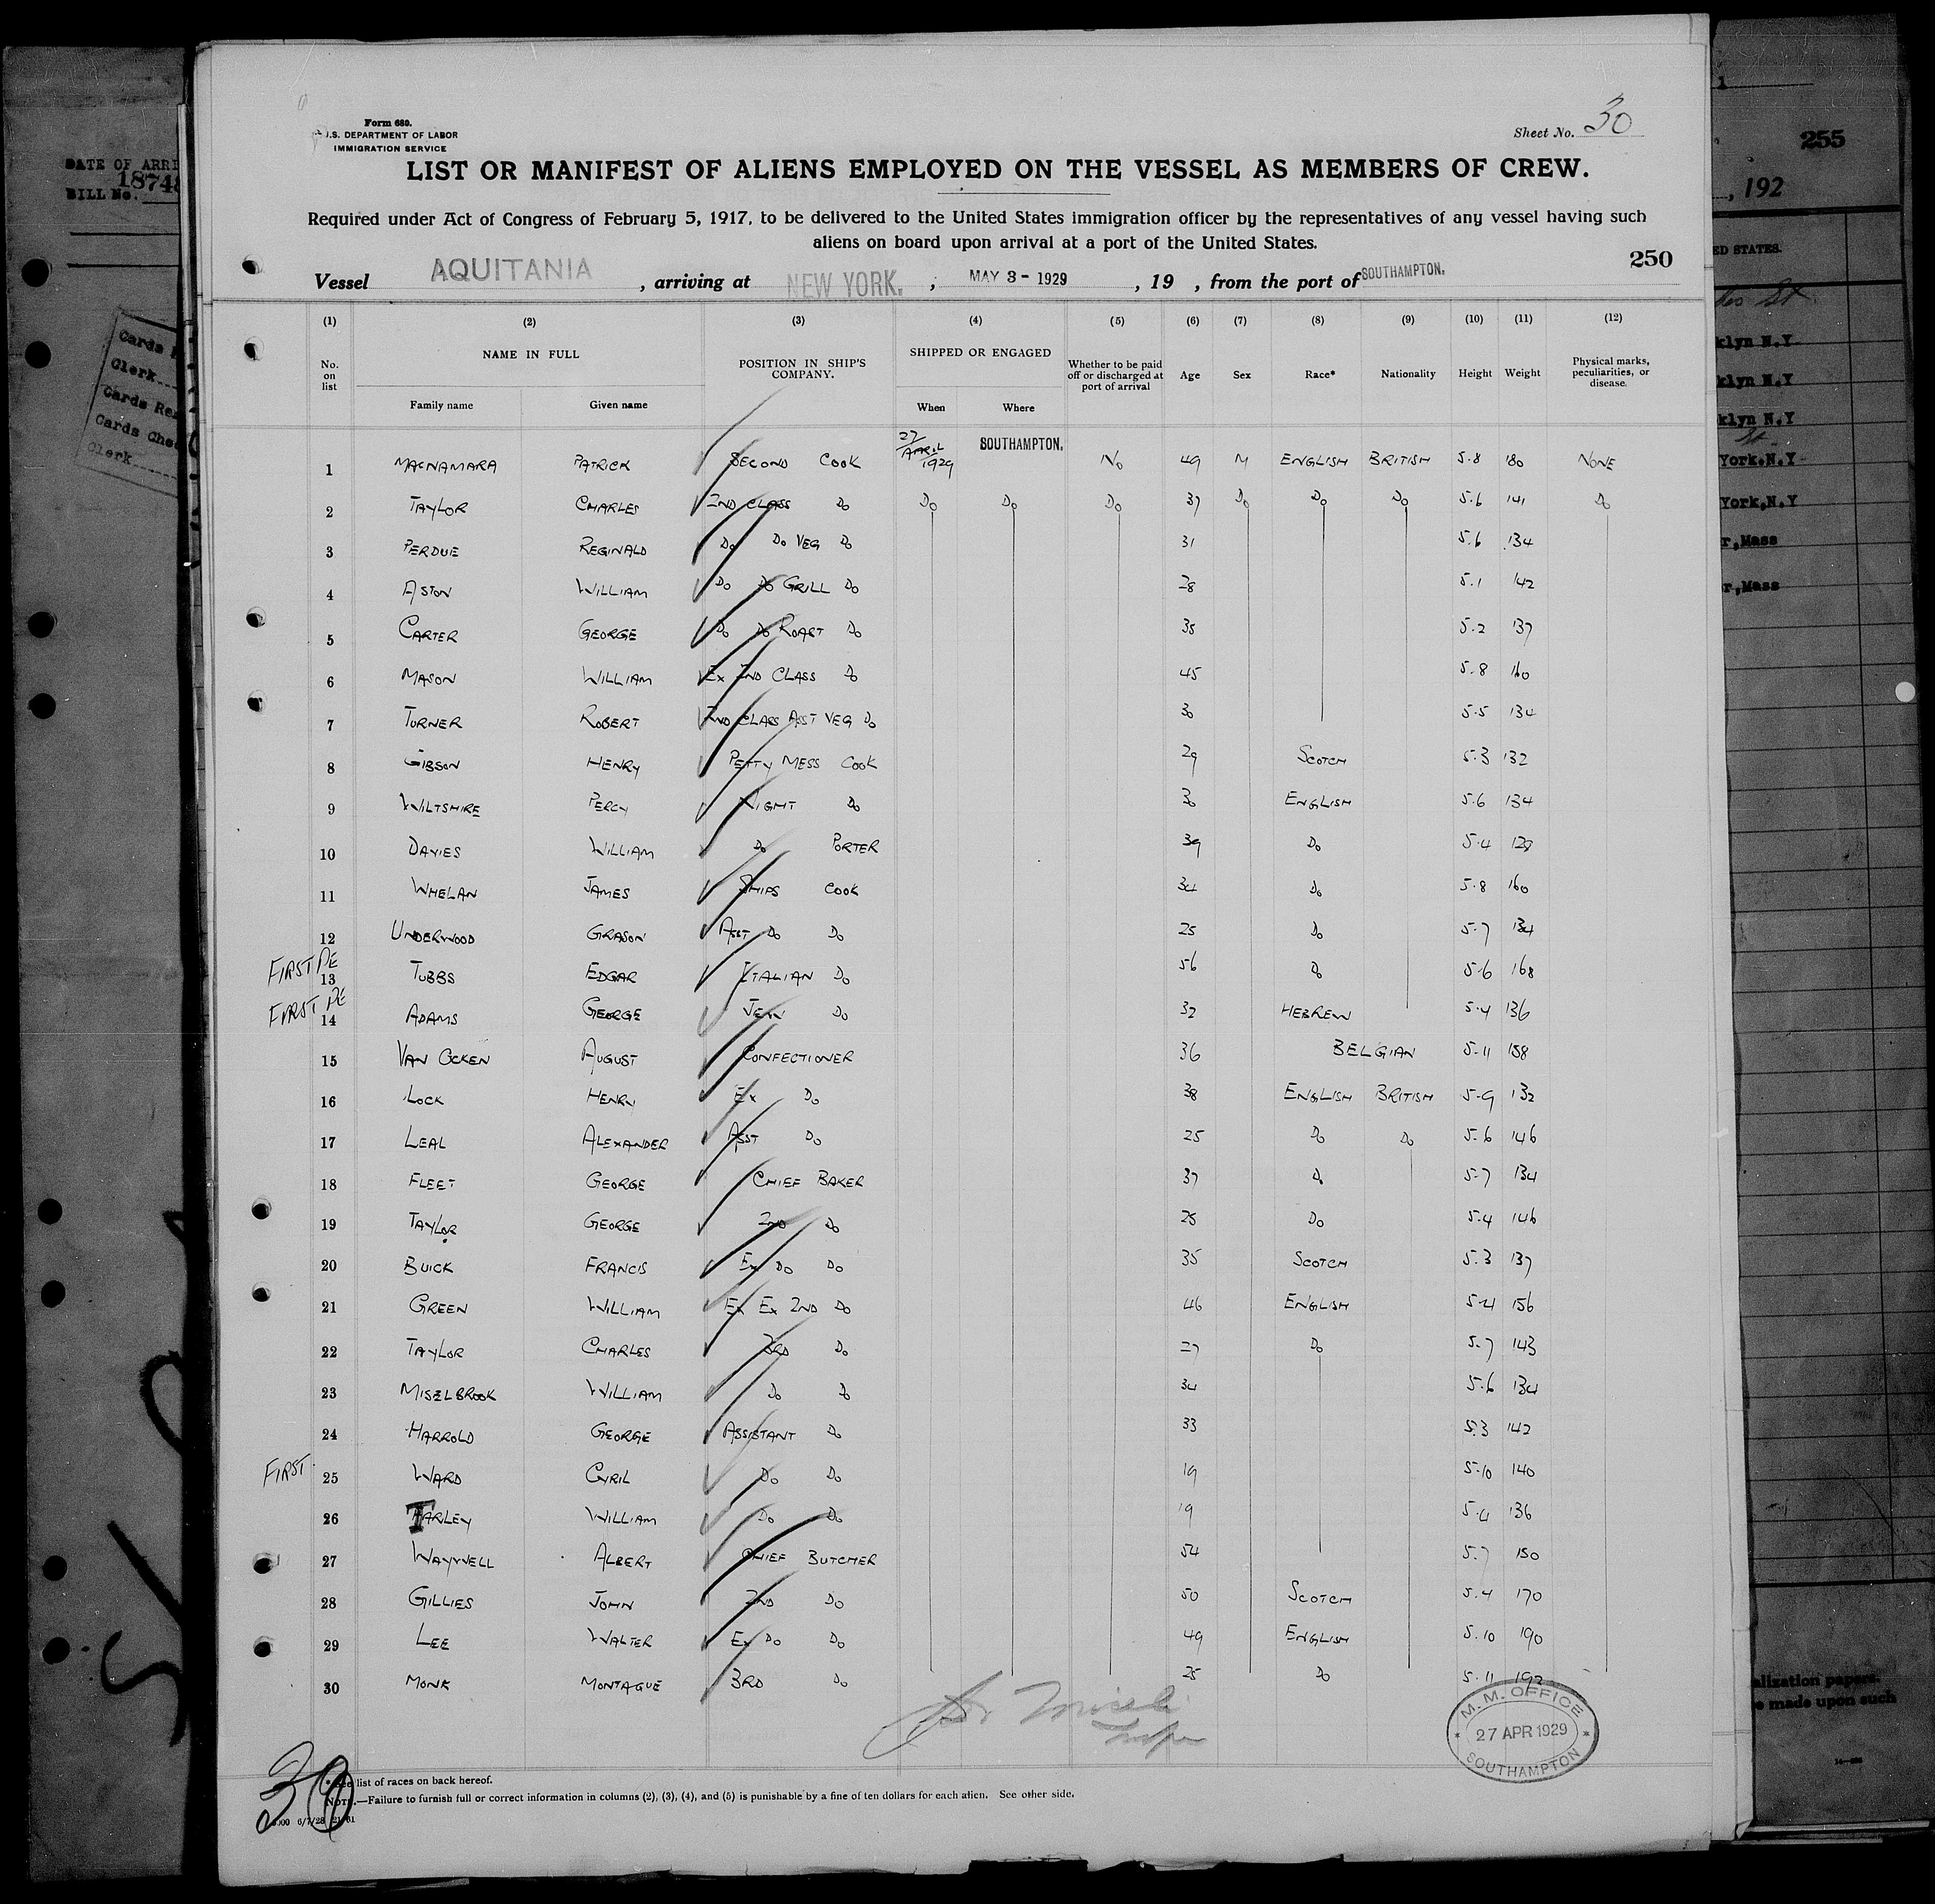 Form 680.
U.S. DEPARTMENT OF LABOR
IMMIGRATION SERVICE
Sheet No. 30
LIST OR MANIFEST OF ALIENS EMPLOYED ON THE VESSEL AS MEMBERS OF CREW.
Required under Act of Congress of February 5, 1917, to be delivered to the United States immigration officer by the representatives of any vessel having such
aliens on board upon arrival at a port of the United States.
250
Vessel AQUITANIA , arriving at NEW YORK. ; MAY 3 - 1929 , 19 , from the port of SOUTHAMPTON.
(1) (2) (3) (4) (5) (6) (7) (8) (9) (10) (11) (12)
No. on list NAME IN FULL POSITION IN SHIP'S COMPANY. SHIPPED OR ENGAGED Whether to be paid off or discharged at port of arrival Age Sex Race* Nationality Height Weight Physical marks, peculiarities, or disease.
Family name Given name When Where
1 MACNAMARA PATRICK SECOND COOK 27/APRIL/1929 SOUTHAMPTON. No 49 M ENGLISH BRITISH 5.8 180 NONE
2 TAYLOR CHARLES 2ND CLASS Do Do Do Do 37 Do Do Do 5.6 141 Do
3 PERDUE REGINALD Do Do VEG Do 31 5.6 134
4 ASTON WILLIAM Do Do GRILL Do 28 5.1 142
5 CARTER GEORGE Do Do ROAST Do 35 5.2 137
6 MASON WILLIAM Ex 2ND CLASS Do 45 5.8 160
7 TURNER ROBERT 2ND CLASS ASST VEG Do 30 5.5 134
8 GIBSON HENRY PETTY MESS COOK 29 SCOTCH 5.3 132
9 WILTSHIRE PERCY NIGHT Do 30 ENGLISH 5.6 134
10 DAVIES WILLIAM Do PORTER 39 Do 5.4
11 WHELAN JAMES SHIPS COOK 34 Do 5.8 160
12 UNDERWOOD GRASON ASST Do Do 25 Do 5.7 134
FIRST PE 13 TUBBS EDGAR ITALIAN Do 56 Do 5.6 168
FIRST PE 14 ADAMS GEORGE JEW Do 32 HEBREW 5.4 136
15 VAN OCKEN AUGUST CONFECTIONER 36 BELGIAN 5.11 158
16 LOCK HENRY Ex Do 38 ENGLISH BRITISH 5.9 132
17 LEAL ALEXANDER ASST Do 25 Do Do 5.6 146
18 FLEET GEORGE CHIEF BAKER 37 Do 5.7 134
19 TAYLOR GEORGE 2ND Do 25 Do 5.4 146
20 BUICK FRANCIS Ex Do Do 35 SCOTCH 5.3 137
21 GREEN WILLIAM Ex Ex 2ND Do 46 ENGLISH 5.4 156
22 TAYLOR CHARLES 3RD Do 27 Do 5.7 143
23 MISELBROOK WILLIAM Do Do 34 5.6 134
24 HARROLD GEORGE ASSISTANT Do 33 5.3 142
FIRST 25 WARD CYRIL Do Do 19 5.10 140
26 TARLEY WILLIAM Do Do 19 5.4 136
27 WAYWELL ALBERT CHIEF BUTCHER 54 5.7 150
28 GILLIES JOHN 2ND Do 50 SCOTCH 5.4 170
29 LEE WALTER Ex Do Do 49 ENGLISH 5.10 190
30 MONK MONTAGUE 3RD Do 25 Do 5.11 192
M. M. OFFICE
27 APR 1929
SOUTHAMPTON
30
* See list of races on back hereof.
NOTE.—Failure to furnish full or correct information in columns (2), (3), (4), and (5) is punishable by a fine of ten dollars for each alien. See other side.
DATE OF ARRI
BILL No. 1874
Cards
Clerk
Cards Rec
Cards Che
Clerk
255
, 192
ED STATES.
klyn N.Y
klyn N.Y
klyn N.Y
York.N.Y
York,N.Y
r,Mass
r,Mass
alization papers.
e made upon such